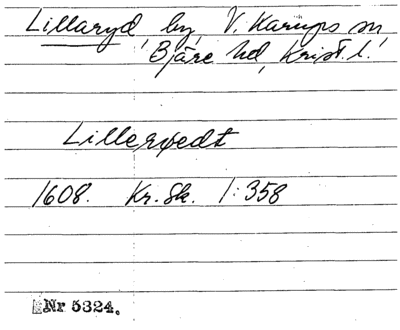 Lillaryd, by, V. Karups sn,
Bjäre hd, Krist. l.
Lillerøedt
1608. Kr. Sk. 1:358
Nr 5324.